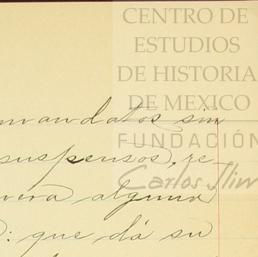 CENTRO DE
ESTUDIOS
DE HISTORIA
DE MEXICO
FUNDACIÓN
Carlos Slim
mandatos sin
suspensos, re
vera alguna
: que dá su